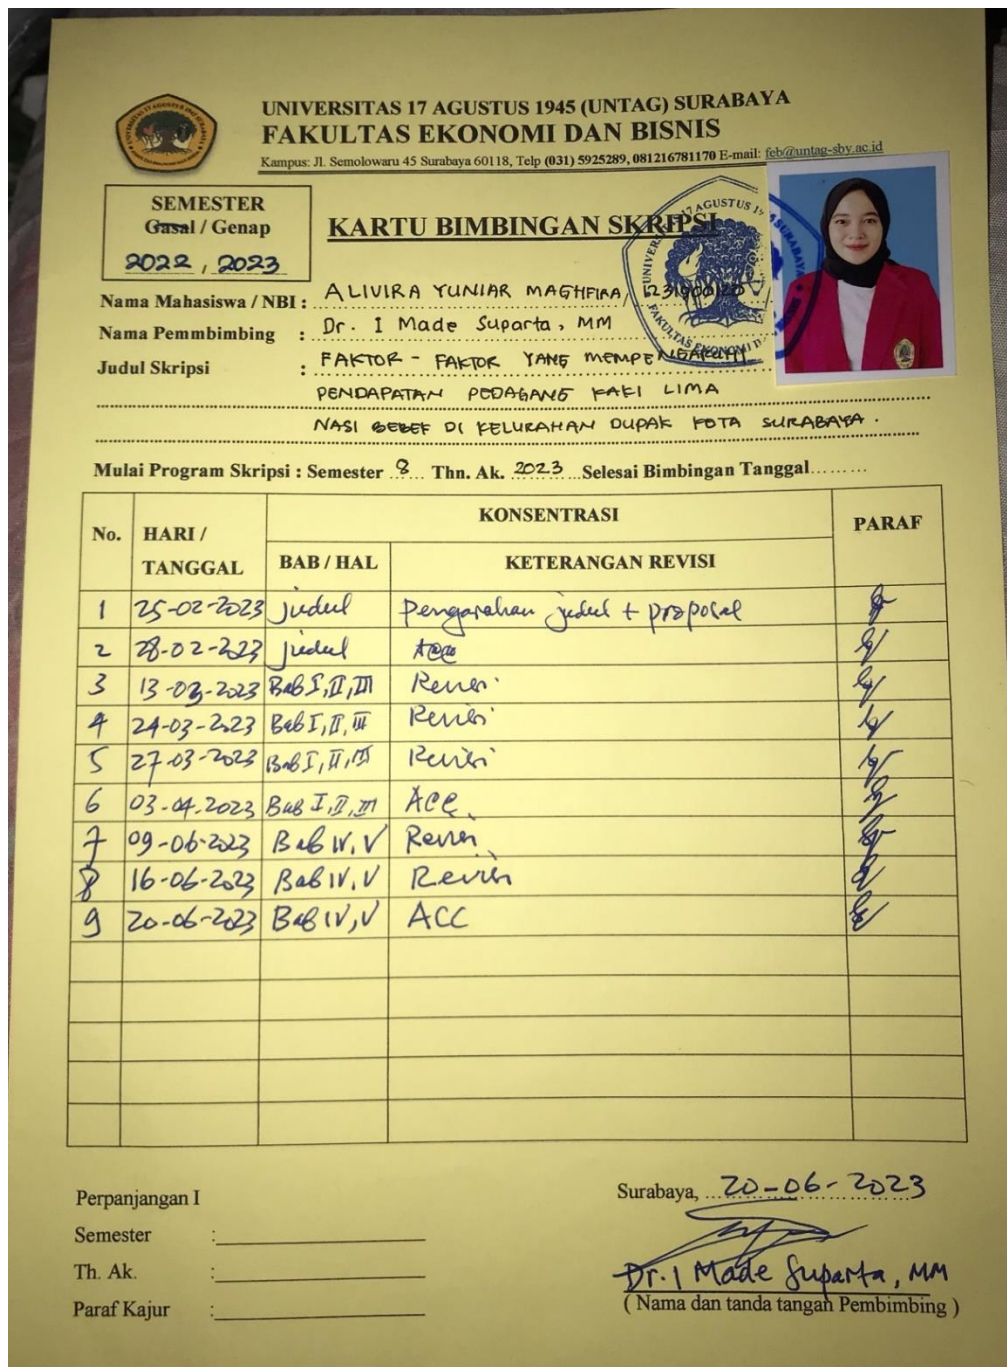 UNIVERSITAS 17 AGUSTUS 1945 (UNTAG) SURABAYA
FAKULTAS EKONOMI DAN BISNIS
Kampus: Jl. Semolowaru 45 Surabaya 60118, Telp (031) 5925289, 081216781170 E-mail: feb@untag-sby.ac.id
SEMESTER
Gasal / Genap
2022 , 2023
KARTU BIMBINGAN SKRIPSI
Nama Mahasiswa / NBI : ALIVIRA YUNIAR MAGHFIRA,
Nama Pemmbimbing : Dr. I Made Suparta, MM
Judul Skripsi : FAKTOR - FAKTOR YANG MEMPENGARUHI
PENDAPATAN PEDAGANG KAKI LIMA
NASI BEBEK DI KELURAHAN DUPAK KOTA SURABAYA.
Mulai Program Skripsi : Semester 8 Thn. Ak. 2023 Selesai Bimbingan Tanggal.........
No. HARI / TANGGAL KONSENTRASI PARAF
BAB / HAL KETERANGAN REVISI
1 25-02-2023 judul Pengarahan judul + proposal
2 28-02-2023 judul Acc
3 13-03-2023 Bab I, II, III Revisi
4 24-03-2023 Bab I, II, III Revisi
5 27-03-2023 Bab I, II, III Revisi
6 03-04.2023 Bab I, II, III ACC
7 09-06-2023 Bab IV, V Revisi
8 16-06-2023 Bab IV, V Revisi
9 20-06-2023 Bab IV, V ACC
Perpanjangan I
Semester :
Th. Ak. :
Paraf Kajur :
Surabaya, 20-06-2023
Dr. I Made Suparta, MM
( Nama dan tanda tangan Pembimbing )